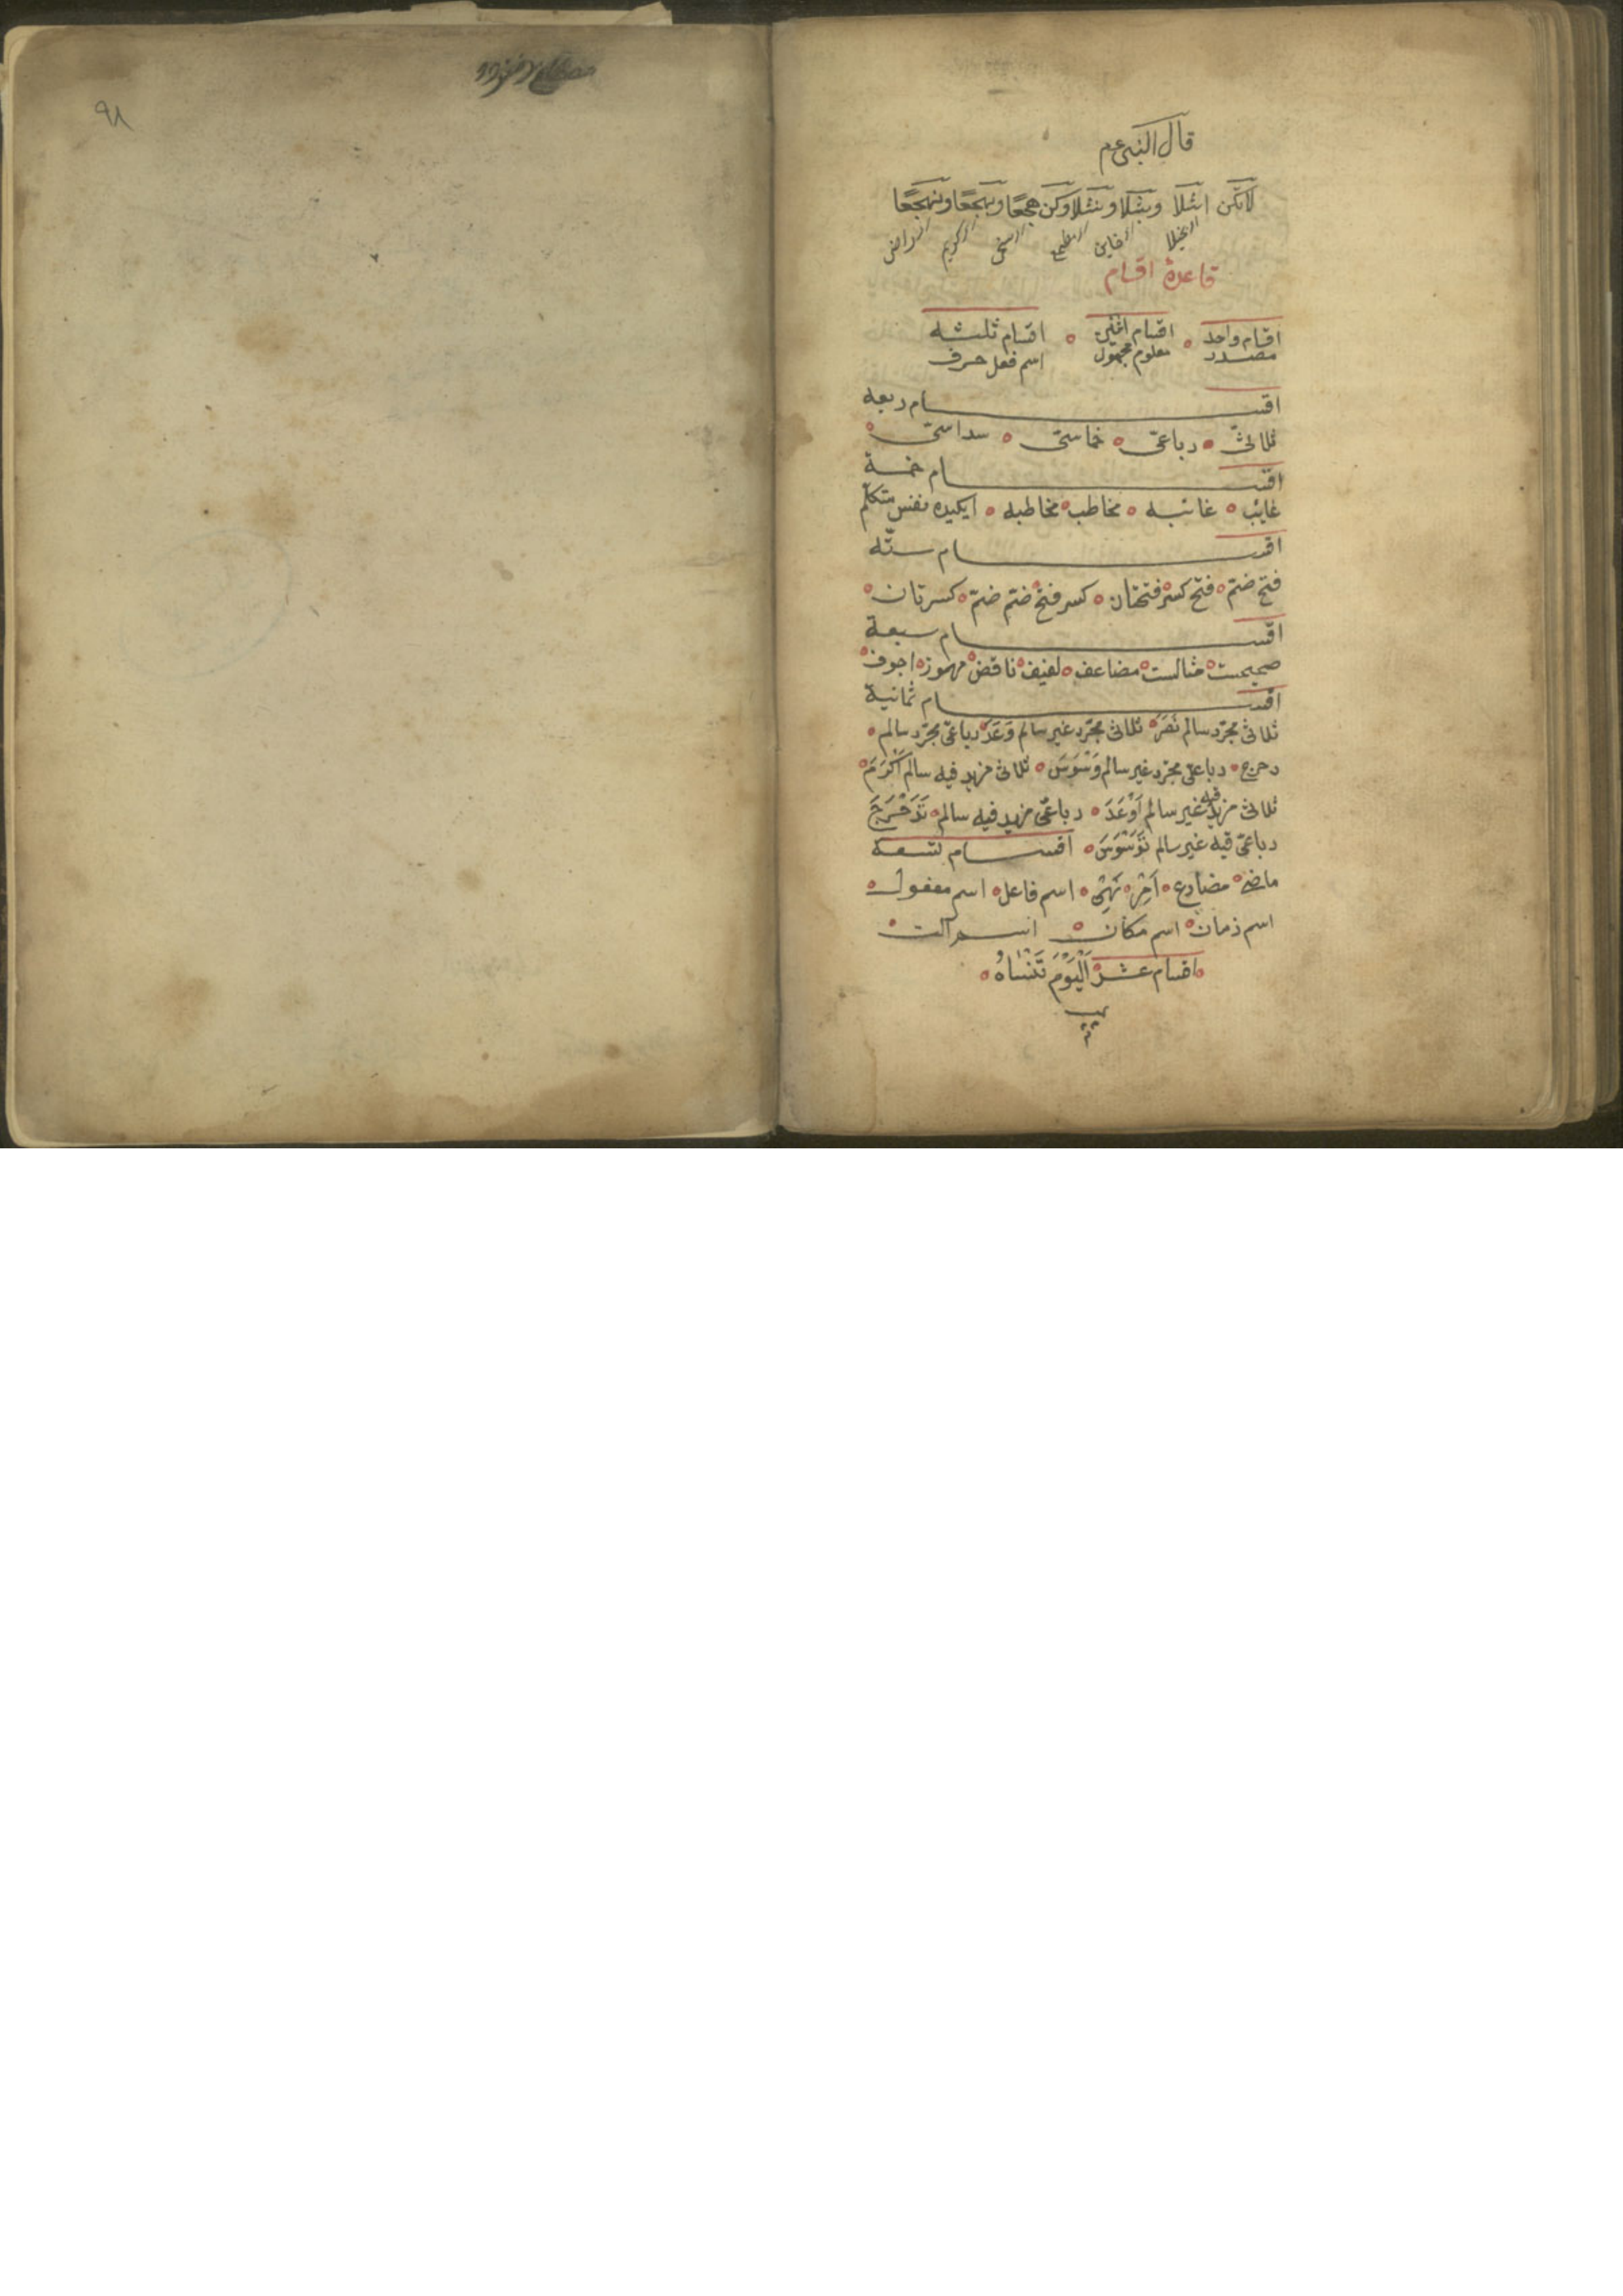 قال النبى عم
لا تكن
قاعدۀ اقسام
اقسام واحد ٥ اقسام اثنين ٥ اقسام ثلثه
مصدر معلوم مجهول اسم فعل حرف
اقسام ربعه
ثلاثىّ ٥ رباعىّ ٥ خماسىّ ٥ سداسىّ ٥
اقسام خمسة
غايب ٥ غائبه ٥ مخاطب ٥ مخاطبه ٥ ايكيده نفس متكلّم
اقسام ستّه
فتح ضمّ ٥ فتح كسر ٥ فتحتان ٥ كسر فتح ٥ ضمّ ضمّ ٥ كسرتان ٥
اقسام سبعة
صحيحست ٥ مثالست ٥ مضاعف ٥ لفيف ٥ ناقص ٥ مهموز ٥ اجوف ٥
اقسام ثمانية
ثلاثى مجرّد سالم نَصَرَ ٥ ثلاثى مجرّد غير سالم وَعَدَ ٥ رباعىّ مجرّد سالم ٥
دحرج ٥ رباعىّ مجرّد غير سالم وَسْوَسَ ٥ ثلاثى مزيد فيه سالم اَكْرَمَ ٥
ثلاثى مزيد فيه غير سالم اَوْعَدَ ٥ رباعىّ مزيد فيه سالم ٥ تَدَحْرَجَ
رباعىّ فيه غير سالم تَوَسْوَسَ ٥ اقسام تسعه
ماضى ٥ مضارع ٥ اَمْر ٥ نَهْى ٥ اسم فاعل ٥ اسم مفعول ٥
اسم زمان ٥ اسم مكان ٥ اسم آلت ٥
٥ اقسام عشر ٥ اَلْيَوْمَ تَنْسَاهُ ٥
٩٨